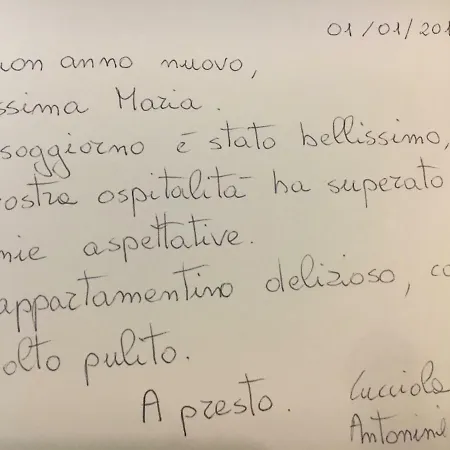 01/01/201
uon anno nuovo,
ssima Maria.
soggiorno è stato bellissimo,
ostra ospitalità ha superato
mie aspettative.
appartamentino delizioso, co
olto pulito.
A presto. Lucciola
Antonini